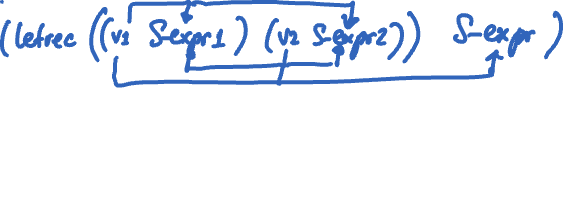 (letrec ((v1 S-expr1) (v2 S-expr2)) S-expr)